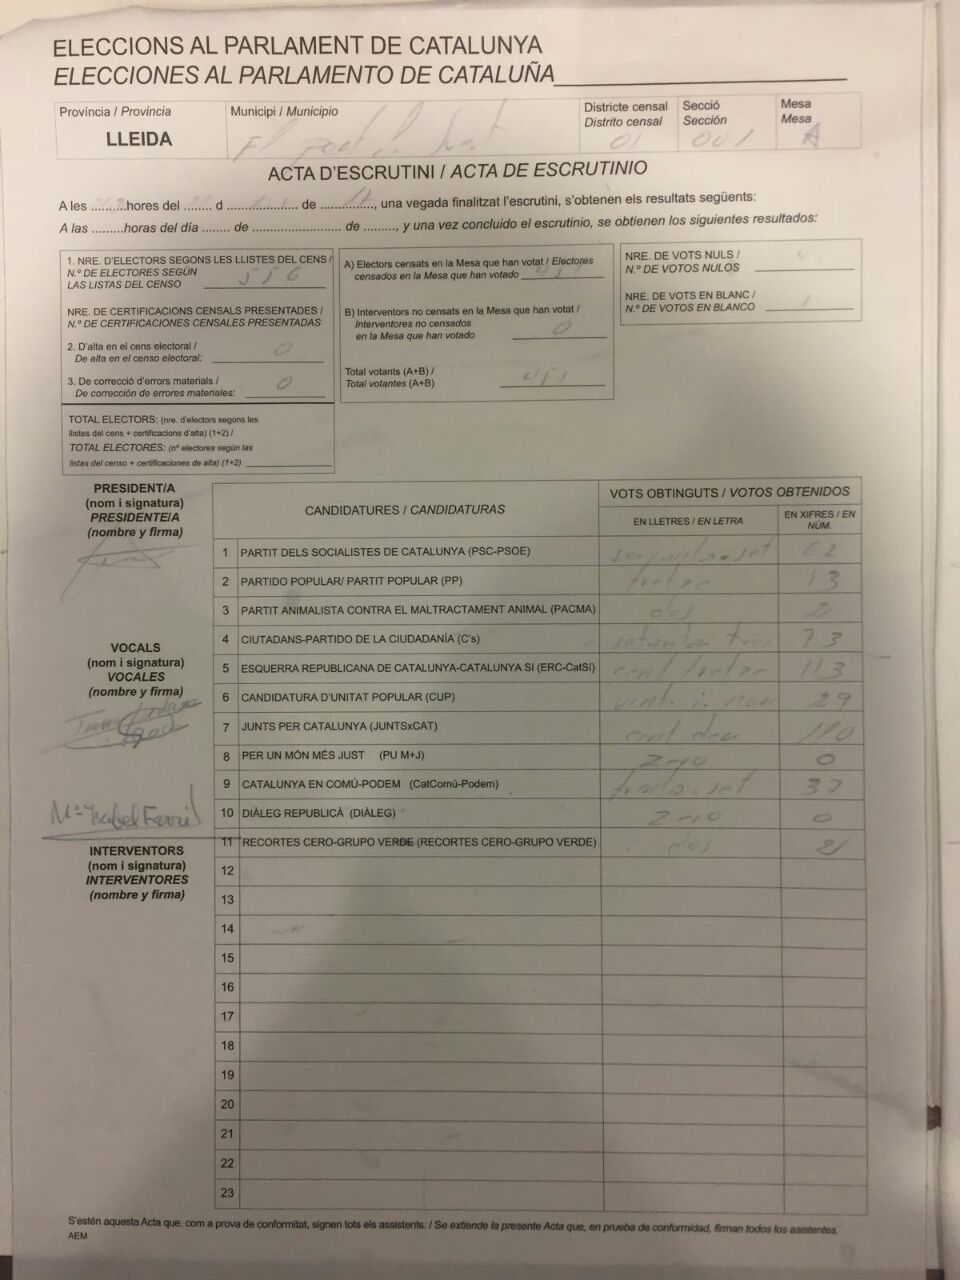 ELECCIONS AL PARLAMENT DE CATALUNYA
ELECCIONES AL PARLAMENTO DE CATALUÑA
Província / Provincia
LLEIDA
Municipi / Municipio
El
Districte censal
Distrito censal
01
Secció
Sección
001
Mesa
Mesa
A
ACTA D'ESCRUTINI / ACTA DE ESCRUTINIO
A les .........hores del ........ d .................... de ..............., una vegada finalitzat l'escrutini, s'obtenen els resultats següents:
A las .........horas del día ....... de ......................... de ........., y una vez concluido el escrutinio, se obtienen los siguientes resultados:
1. NRE. D'ELECTORS SEGONS LES LLISTES DEL CENS /
N.º DE ELECTORES SEGÚN
LAS LISTAS DEL CENSO 556
NRE. DE CERTIFICACIONS CENSALS PRESENTADES /
N.º DE CERTIFICACIONES CENSALES PRESENTADAS
2. D'alta en el cens electoral /
De alta en el censo electoral: 0
3. De correcció d'errors materials /
De corrección de errores materiales: 0
TOTAL ELECTORS: (nre. d'electors segons les
llistes del cens + certificacions d'alta) (1+2) /
TOTAL ELECTORES: (nº electores según las
listas del censo + certificaciones de alta) (1+2)
A) Electors censats en la Mesa que han votat / Electores
censados en la Mesa que han votado
B) Interventors no censats en la Mesa que han votat /
Interventores no censados
en la Mesa que han votado 0
Total votants (A+B) /
Total votantes (A+B)
NRE. DE VOTS NULS /
N.º DE VOTOS NULOS
NRE. DE VOTS EN BLANC /
N.º DE VOTOS EN BLANCO 1
PRESIDENT/A
(nom i signatura)
PRESIDENTE/A
(nombre y firma)
VOCALS
(nom i signatura)
VOCALES
(nombre y firma)
Mª Isabel
INTERVENTORS
(nom i signatura)
INTERVENTORES
(nombre y firma)
CANDIDATURES / CANDIDATURAS
VOTS OBTINGUTS / VOTOS OBTENIDOS
EN LLETRES / EN LETRA
EN XIFRES / EN
NÚM.
1 PARTIT DELS SOCIALISTES DE CATALUNYA (PSC-PSOE)
2 PARTIDO POPULAR/ PARTIT POPULAR (PP) tretze 13
3 PARTIT ANIMALISTA CONTRA EL MALTRACTAMENT ANIMAL (PACMA) dos 2
4 CIUTADANS-PARTIDO DE LA CIUDADANÍA (C's) setanta tres 73
5 ESQUERRA REPUBLICANA DE CATALUNYA-CATALUNYA SÍ (ERC-CatSí) cent tretze 113
6 CANDIDATURA D'UNITAT POPULAR (CUP) vint i nou 29
7 JUNTS PER CATALUNYA (JUNTSxCAT) cent deu 110
8 PER UN MÓN MÉS JUST (PU M+J) zero 0
9 CATALUNYA EN COMÚ-PODEM (CatComú-Podem) trenta-set 37
10 DIÀLEG REPUBLICÀ (DIÀLEG) zero 0
11 RECORTES CERO-GRUPO VERDE (RECORTES CERO-GRUPO VERDE) dos 2
12
13
14
15
16
17
18
19
20
21
22
23
S'estén aquesta Acta que, com a prova de conformitat, signen tots els assistents. / Se extiende la presente Acta que, en prueba de conformidad, firman todos los asistentes.
AEM